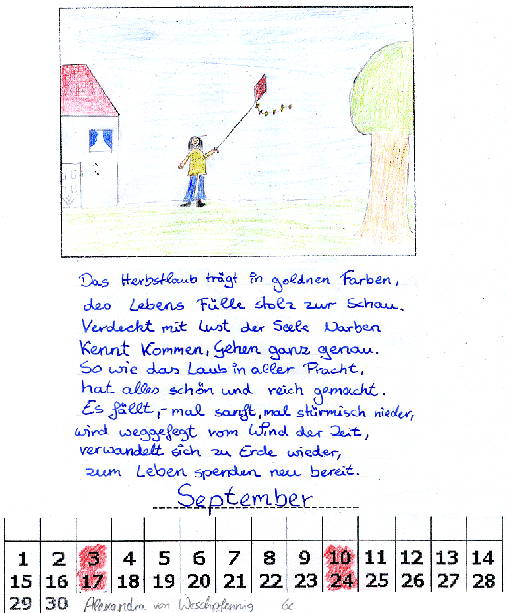 Das Herbstlaub trägt in goldnen Farben,
des Lebens Fülle stolz zur Schau.
Verdeckt mit Lust der Seele Narben
Kennt Kommen, Gehen ganz genau.
So wie das Laub in aller Pracht,
hat alles schön und reich gemacht.
Es fällt,- mal sanft, mal stürmisch nieder,
wird weggefegt vom Wind der Zeit,
verwandelt sich zu Erde wieder,
zum Leben spenden neu bereit.
September
1 2 3 4 5 6 7 8 9 10 11 12 13 14
15 16 17 18 19 20 21 22 23 24 25 26 27 28
29 30 Alexandra von